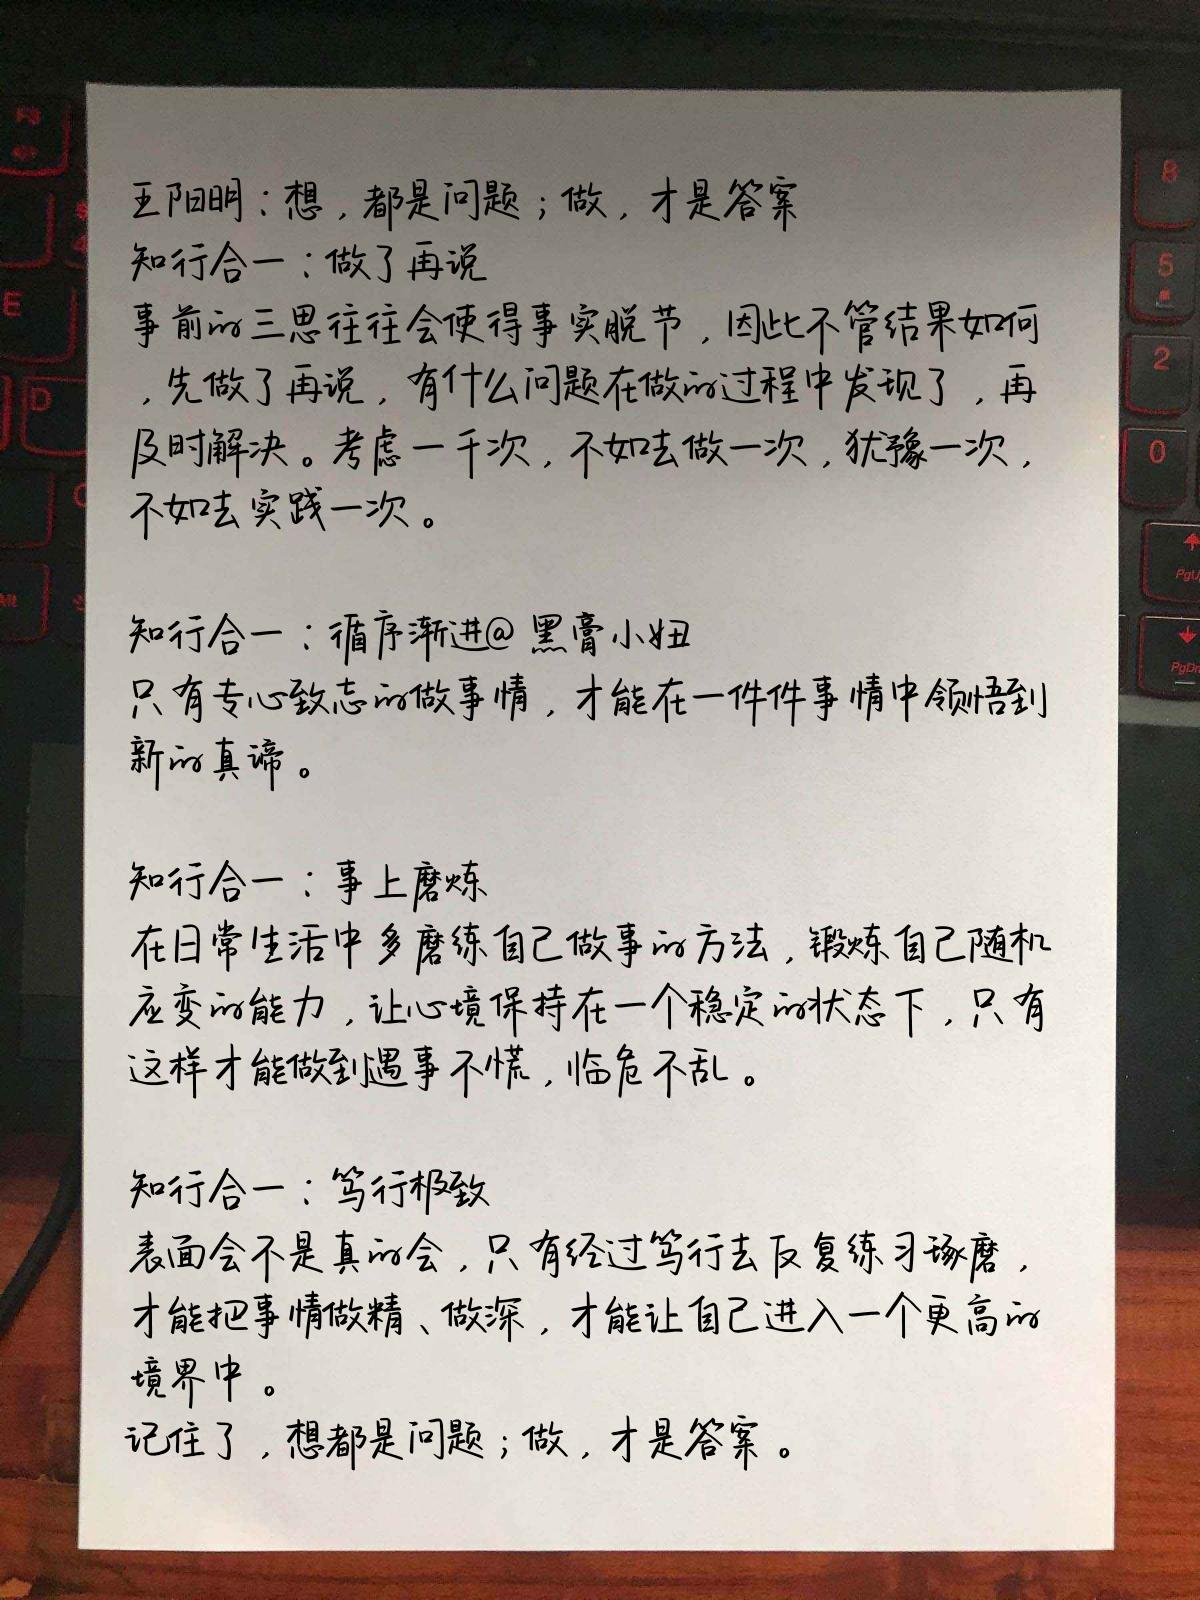 王阳明：想，都是问题；做，才是答案
知行合一：做了再说
事前的三思往往会使得事实脱节，因此不管结果如何
，先做了再说，有什么问题在做的过程中发现了，再
及时解决。考虑一千次，不如去做一次，犹豫一次，
不如去实践一次。
知行合一：循序渐进@黑膏小妞
只有专心致志的做事情，才能在一件件事情中领悟到
新的真谛。
知行合一：事上磨炼
在日常生活中多磨练自己做事的方法，锻炼自己随机
应变的能力，让心境保持在一个稳定的状态下，只有
这样才能做到遇事不慌，临危不乱。
知行合一：笃行极致
表面会不是真的会，只有经过笃行去反复练习琢磨，
才能把事情做精、做深，才能让自己进入一个更高的
境界中。
记住了，想都是问题；做，才是答案。
E
D
8
5
2
0
PgU
PgDn